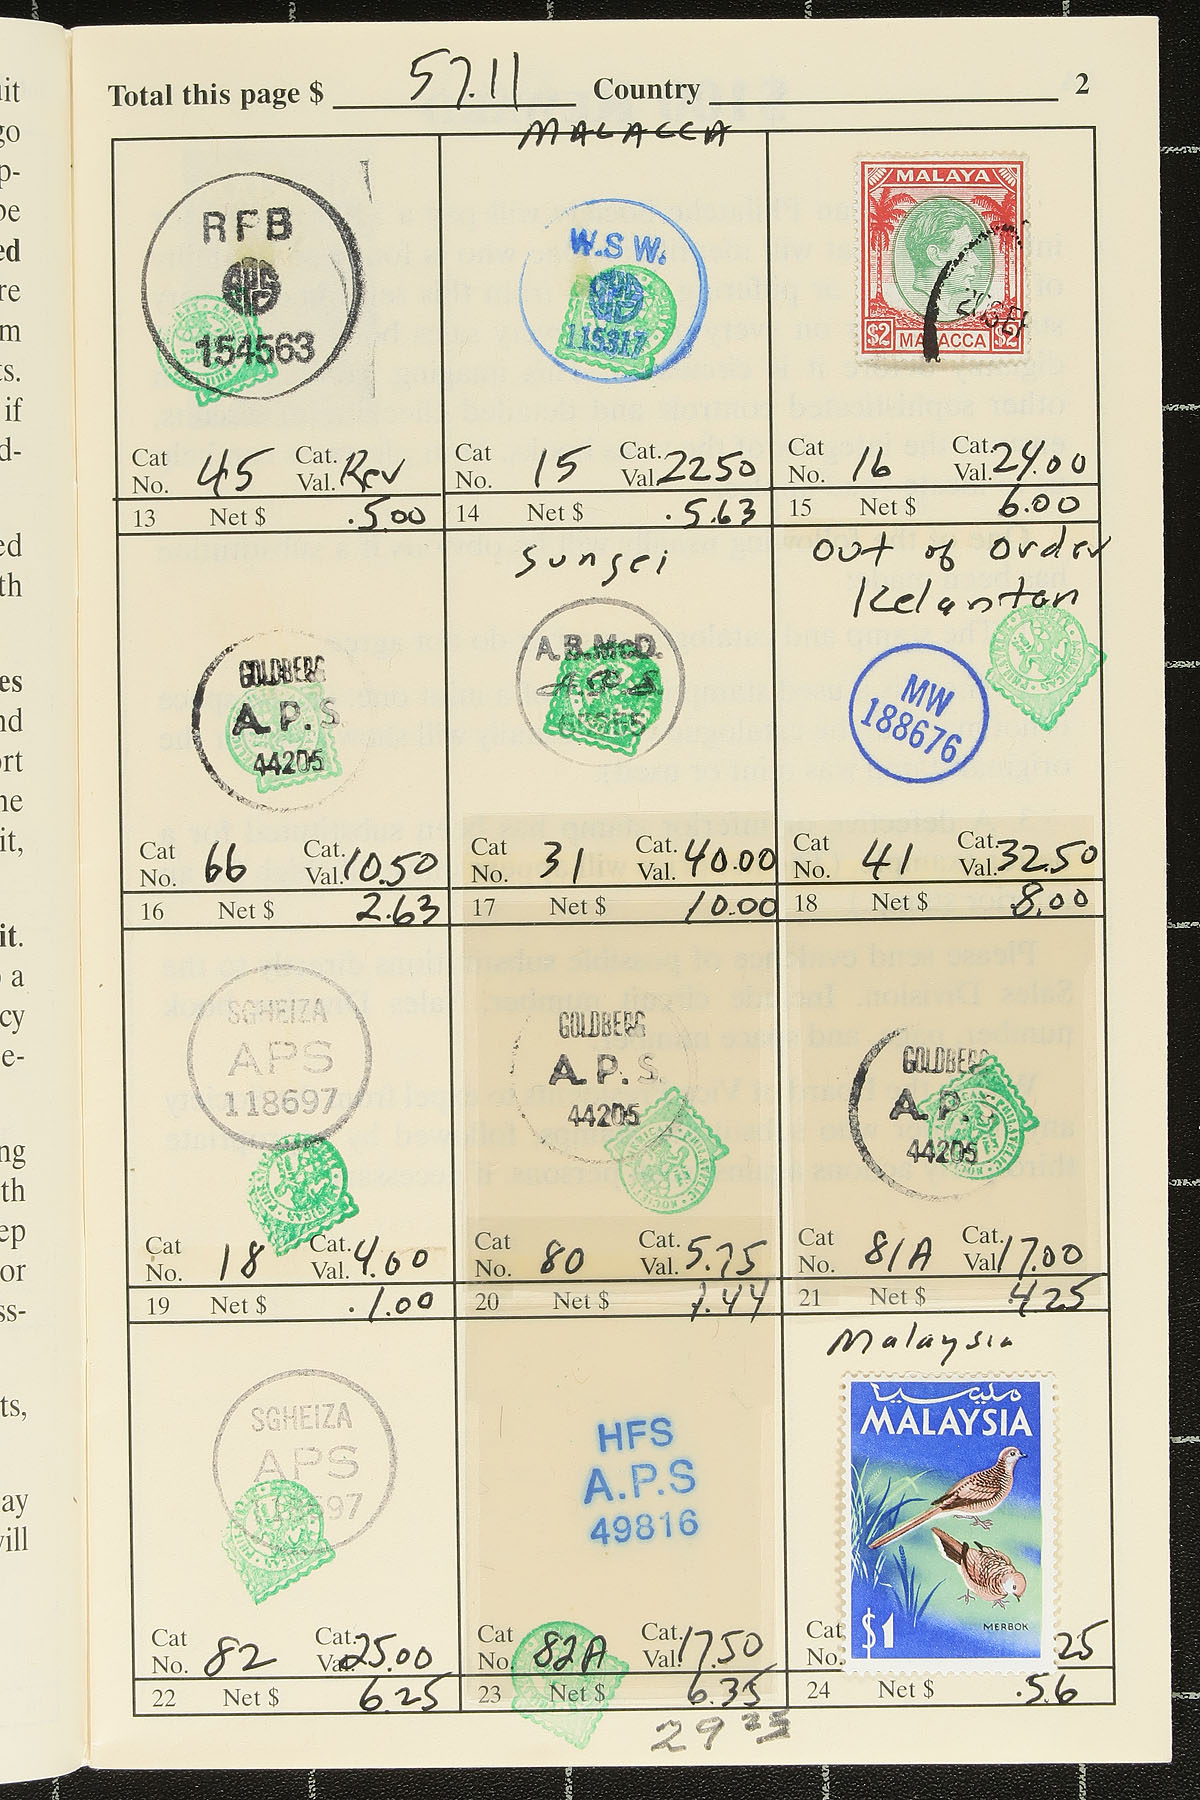 Total this page $ 57.11 Country 2
MALACCA
RFB
APS
154563
W.S.W.
115317
MALAYA
$2 MALACCA $2
Cat No. 45 Cat. Val. Rev
13 Net $ .5.00
Cat No. 15 Cat. Val. 22 50
14 Net $ .5.63
Cat No. 16 Cat. Val. 24.00
15 Net $ 6.00
GOLDBERG
A.P.S.
44205
Sungei
A.B.McD.
A.P.S.
Out of Order
Kelantan
MW
188676
Cat No. 66 Cat. Val. 10.50
16 Net $ 2.63
Cat No. 31 Cat. Val. 40.00
17 Net $ 10.00
Cat No. 41 Cat. Val. 32.50
18 Net $ 8.00
SGHEIZA
APS
118697
GOLDBERG
A.P.S.
44205
GOLDBERG
A.P.
44205
Cat No. 18 Cat. Val. 4.00
19 Net $ .1.00
Cat No. 80 Cat. Val. 5.75
20 Net $ 1.44
Cat No. 81A Cat. Val. 17.00
21 Net $ 4.25
SGHEIZA
APS
HFS
A.P.S
49816
Malaysia
مليسيا
MALAYSIA
$1
MERBOK
Cat No. 82 Cat. Val. 25.00
22 Net $ 6.25
Cat No. 82A Cat. Val. 17.50
23 Net $ 6.35
Cat No. 25
24 Net $ .56